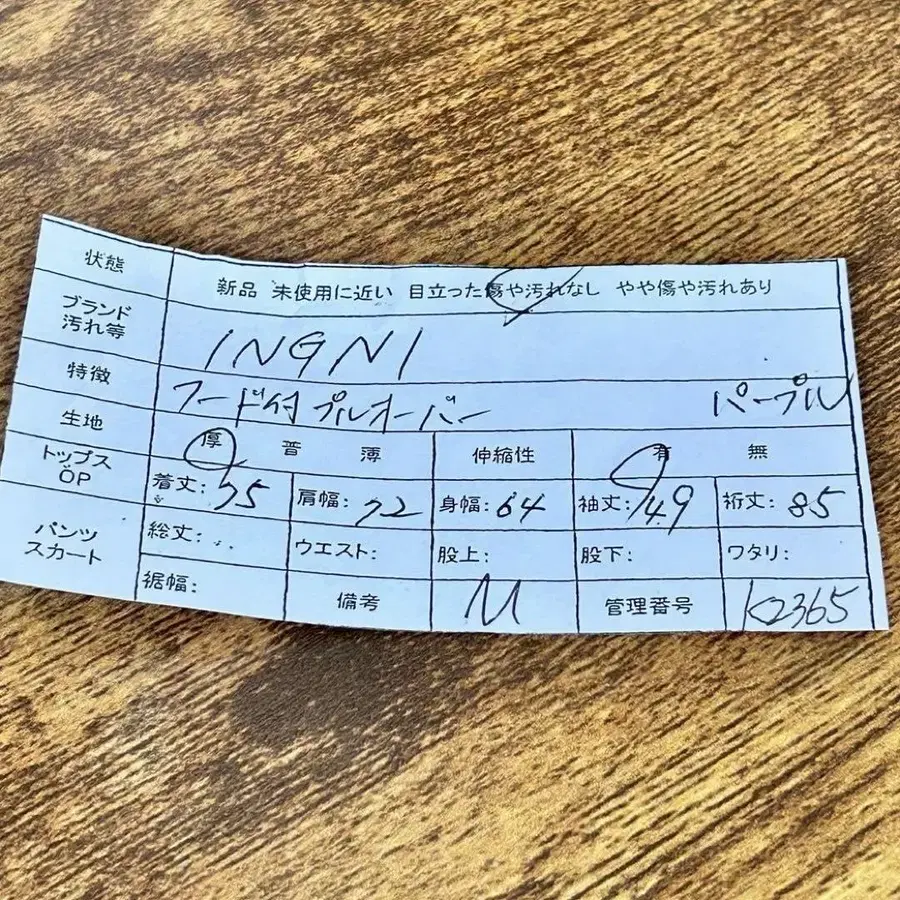 状態 新品 未使用に近い 目立った傷や汚れなし やや傷や汚れあり
ブランド
汚れ等 INGNI
特徴 フード付プルオーバー パープル
生地 厚 普 薄 伸縮性 有 無
トップス
OP 着丈:75 肩幅:72 身幅:64 袖丈:49 裄丈:85
パンツ
スカート 総丈: ウエスト: 股上: 股下: ワタリ:
裾幅: 備考 M 管理番号 K2365